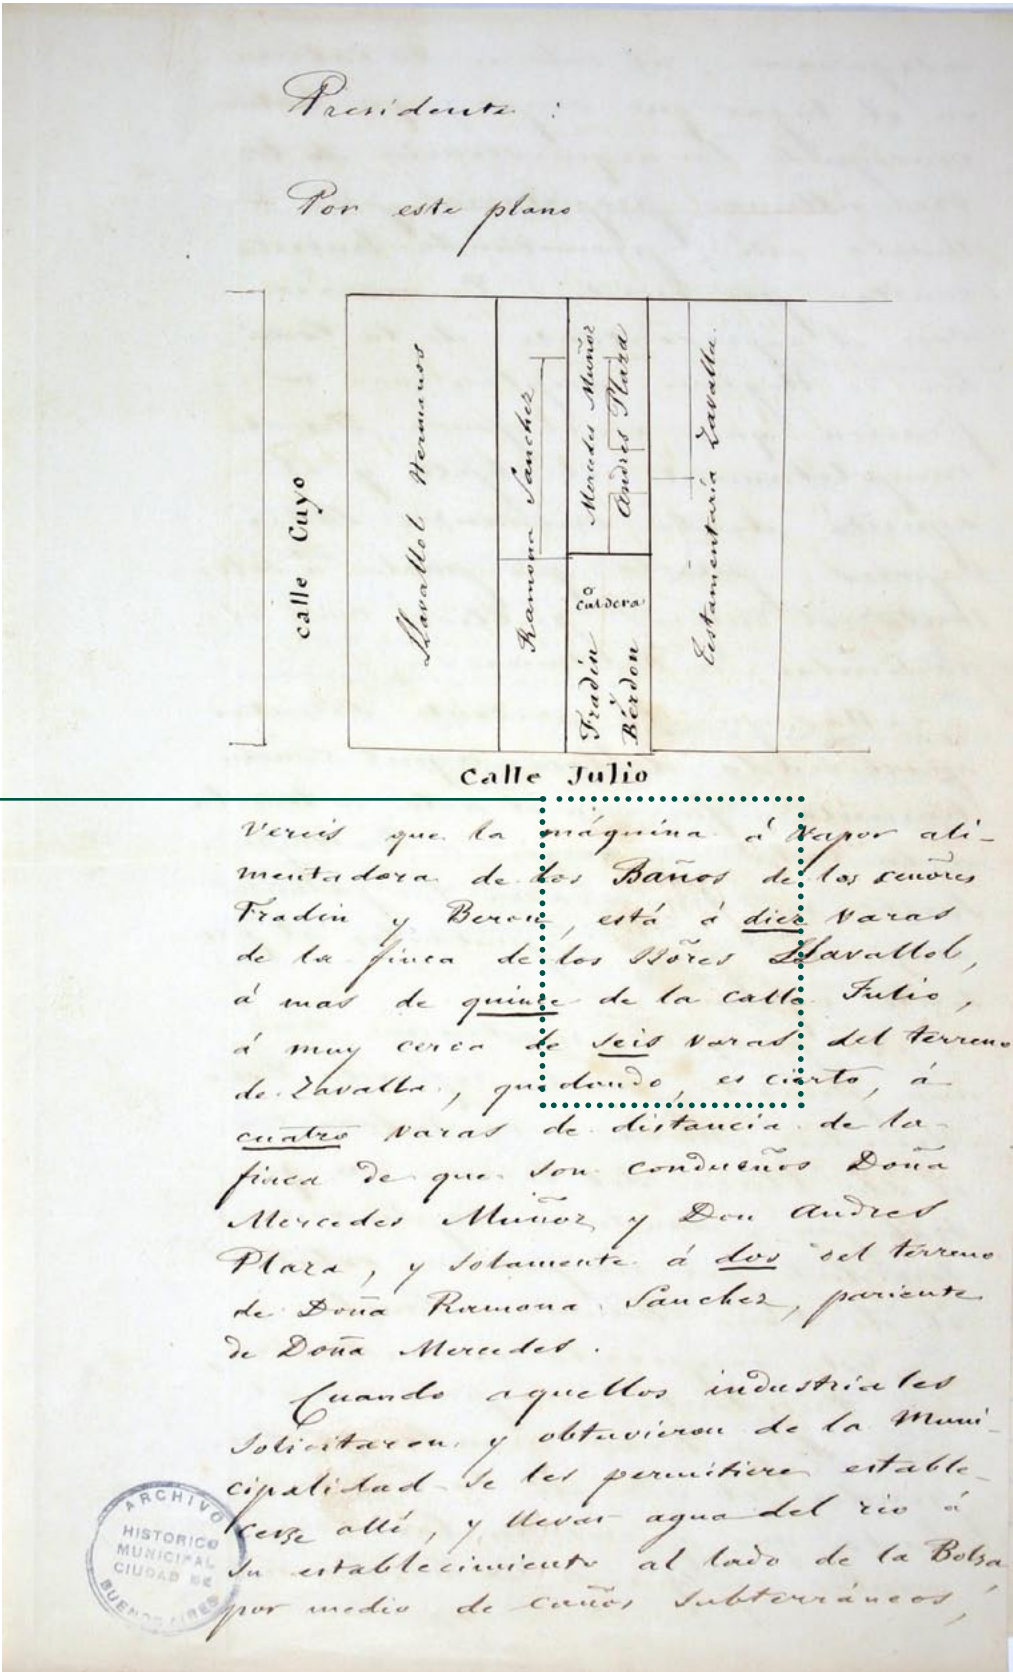 Presidente :
Por este plano
calle Cuyo
Llavallol Hermanos
Ramona Sanchez
Mercedes Muñoz
Andres Plaza
caldera
Fradin
y
Berdon
Testamentaría Zavalla
Calle Julio
Vereis que la máquina á vapor ali-
mentadora de los Baños de los señores
Fradin y Beron, está á diez varas
de la finca de los Sñōres Llavallol,
á mas de quince de la calle Julio,
á muy cerca de seis varas del terreno
de Zavalla, quedando, es cierto, á
cuatro varas de distancia de la
finca de que son condueños Doña
Mercedes Muñoz y Don Andres
Plaza, y solamente á dos del terreno
de Doña Ramona Sanchez, pariente
de Doña Mercedes.
Cuando aquellos industriales
solicitaron y obtuvieron de la Muni-
cipalidad se les permitiere estable-
cerse allí, y llevar agua del rio á
su establecimiento al lado de la Bolsa
por medio de caños subterráneos,
ARCHIVO
HISTORICO
MUNICIPAL
CIUDAD DE
BUENOS AIRES